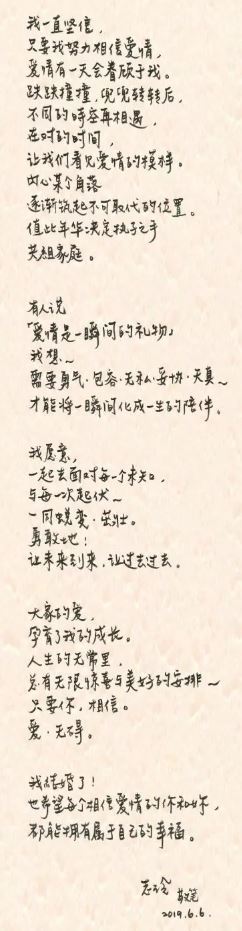 我一直坚信,
只要我努力相信爱情,
爱情有一天会眷顾于我。
跌跌撞撞,兜兜转转后,
不同的时空再相遇,
在对的时间,
让我们看见爱情的模样。
内心某个角落
逐渐筑起不可取代的位置。
值此年华决定执子之手
共组家庭。
有人说
「爱情是一瞬间的礼物」
我想~
需要勇气·包容·无私·妥协·天真~
才能将一瞬间化成一生的陪伴。
我愿意,
一起去面对每一个未知,
与每一次起伏~
一同蜕变·茁壮。
勇敢地!
让未来到来,让过去过去。
大家的爱,
孕育了我的成长。
人生的无常里,
总有无限惊喜与美好的安排~
只要你,相信。
爱·无碍。
我结婚了!
也希望每个相信爱情的你和妳,
都能拥有属于自己的幸福。
志玲
2019.6.6.